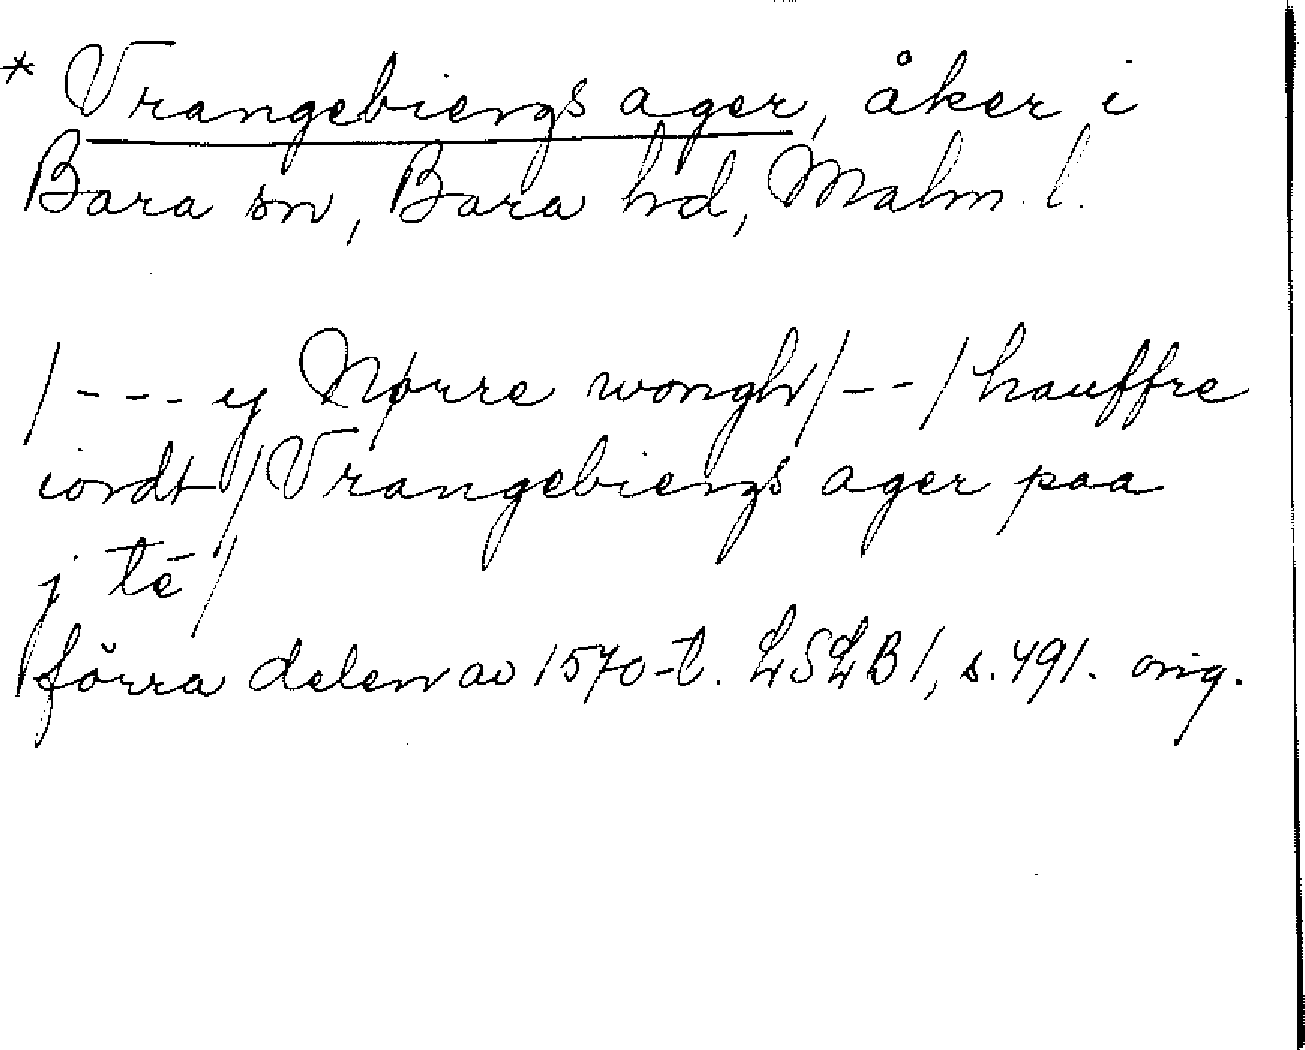 * Vrangebiergs ager, åker i
Bara sn, Bara hd, Malm. l.
/---y Nørre wongh/--/hauffre
iordt/Vrangebiergs ager paa
j tē/
förra delen av 1570-t. LSLB 1, s. 491. orig.